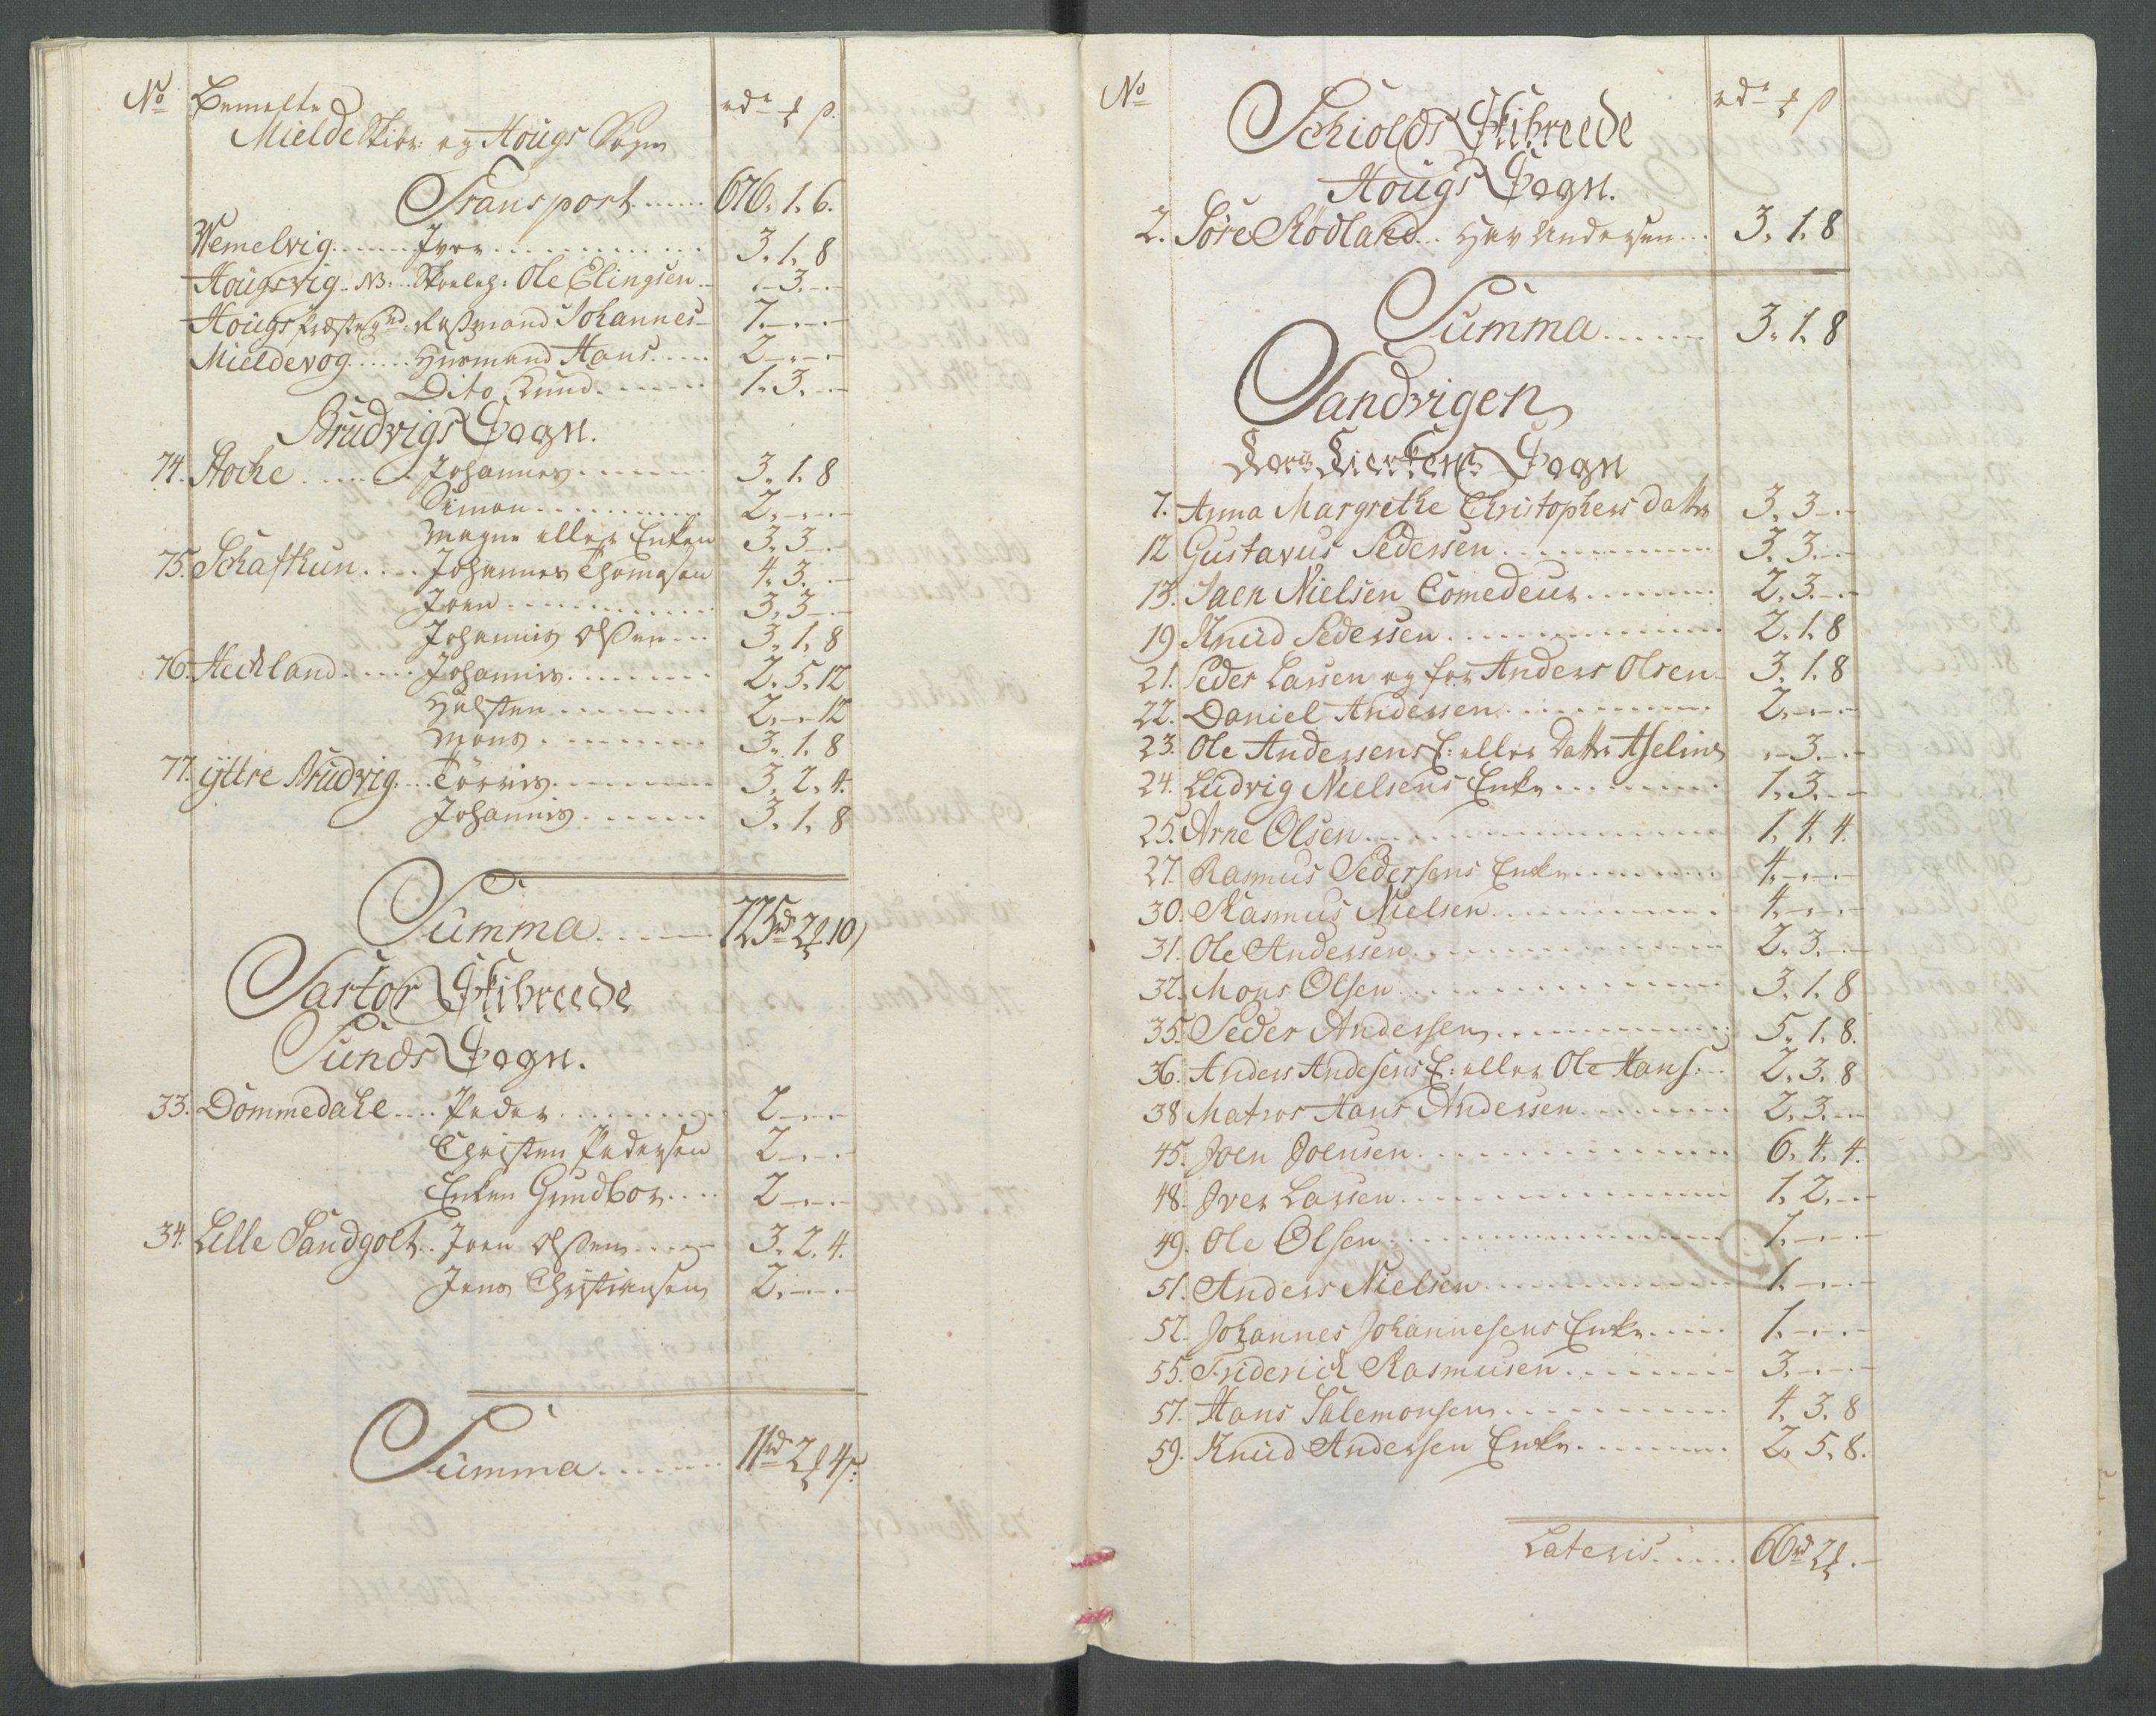 No Bemelte rdr ß
Mielde Skibr: og Hougs Sogn
Transport ...... 676. 1. 6.
Wemelvig ...... Iver ............ 3. 1. 8
Hougsvig. NB: ... Ole Elingsen .. - 3. -
Hougs Præstegrd. Johannes - 7. - -
Mieldevog ...... Huusmand Hans ..... 2 - -
Dito Knud ....... 1. 3. -
Brudvigs Sogn.
74. Stoche ...... Johannes ....... 3. 1. 8
Simon .......... 2. - -
Magne eller Enken 3. 3 -
75. Schafthun .... Johannes Thomesen 4. 3. -
Joen ............ 3. 3 -
Johannis Olßen ... 3. 1. 8
76. Heckland ..... Johannis ....... 2. 5. 12
Halsten ....... 2. - 12
Mons ........ 3. 1. 8
77. ÿttre Brudvig ... Törris ........ 3. 2. 4.
Johannis ...... 3. 1. 8
Summa ...... 725rd 2 10
Sartor Skibreede
Sunds Sogn.
33. Dommedahl .... Peder ......... 2 - -
Christen Pedersen 2 - -
Enken Gundbor .... 2 - -
34. Lille Sandgolt .. Joen Olßen ..... 3. 2. 4.
Jens Christiansen 2. - -
Summa ....... 11rd 2 4ß:
No rdr ß
Schiolds Skibreede
Hougs Sogn.
2. Söre Rödland ... Andersen ... 3. 1. 8
Summa ...... 3. 1. 8
Sandvigen
Kors Kierkens Sogn
7. Anna Margrethe Christophers datter 3. 3 -
12 Gustavus Pedersen ......... 3. 3. -
13. Jaen Nielsen Comedeur ...... 2. 3. -
19 Knud Pedersen .......... 2. 1. 8
21. Peder Larsen og for Anders Olsen - 3. 1. 8
22. Daniel Andersen ......... 2. - -
23. Ole Andersens E: eller Datter Aseline - 3. -
24. Ludvig Nielsens Enke ....... 1. 3. -
25. Arne Olsen ............ 1. 4. 4.
27. Rasmus Pedersens Enke ...... 4. - -
30. Rasmus Nielsen ......... 4. - -
31. Ole Andersen .......... 2. 3. -
32. Mons Olsen ........... 3. 1. 8
35. Peder Andersen ......... 5. 1. 8.
36. Anders Andesens E: eller Ole Hans: .. 2. 3. 8
38 Matros Hans Andersen ...... 2. 3. -
45. Joen Joensen .......... 6. 4. 4.
48. Iver Larsen ........... 1. 2. -
49. Ole Olsen ............ 1. - -
51. Anders Nielsen ......... 1. - -
52. Johannes Johannesens Enke .... 1. - -
55. Friderich Rasmusen ....... 3. - -
57. Hans Salemonsen ......... 4. 3. 8
59. Knud Andersen Enke ...... 2. 5. 8.
Lateris ..... 66rd 2 . -